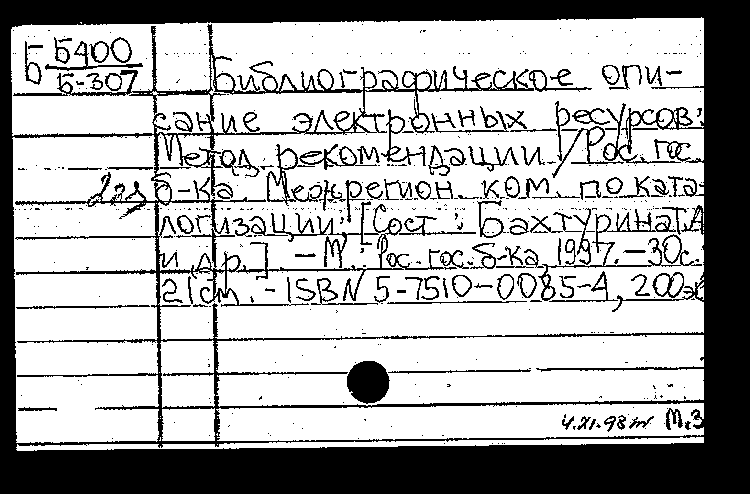 Б Б400
Б-307
Библиографическое опи-
сание электронных ресурсов:
Метод. рекомендации / Рос. гос.
б-ка. Межрегион. ком. по ката-
логизации; [Сост.: Бахтурина Т.А
и др.]. - М.: Рос. гос. б-ка, 1997. - 30с.;
21см. - ISBN 5-7510-0085-4, 200эк
4.XI.98 М.З